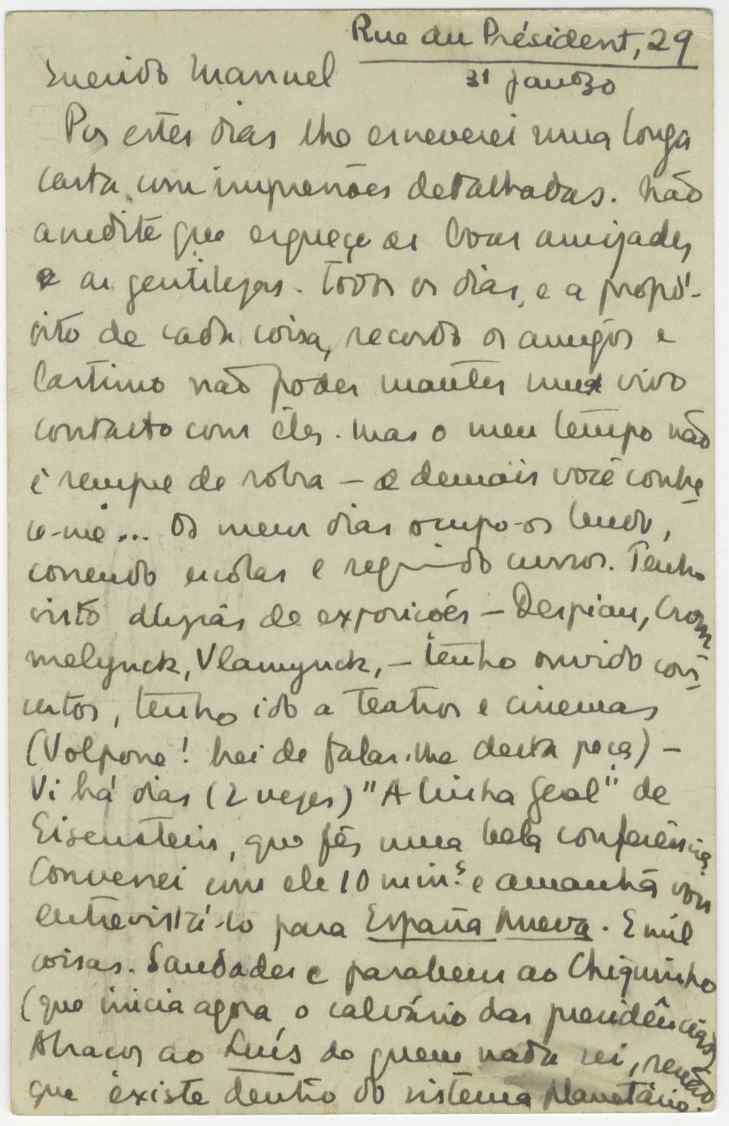 Rue du Président, 29
31 Janº 30
Querido Manuel
Por estes dias lhe escreverei uma longa
carta com impressões detalhadas. Não
acredite que esqueço as boas amizades
e as gentilezas. Todos os dias, e a propó-
sito de cada coisa, recordo os amigos e
lastimo não poder manter mais vivo
contacto com êles. Mas o meu tempo não
é sempre de sobra – e demais você conhe-
ce-me... Os meus dias ocupo-os lendo,
correndo escolas e seguindo cursos. Tenho
visto dúzias de exposições – Despiau, Crom-
melynck, Vlamynck, – tenho ouvido con-
certos, tenho ido a teatros e cinemas
(Volpone! hei de falar-lhe desta peça) –
Vi há dias (2 vezes) "A linha geral" de
Eisenstein, que fês uma bela conferência.
Conversei com ele 10 min.s e amanhã vou
entrevistá-lo para España Nueva. E mil
coisas. Saudades e parabens ao Chiquinho
(que inicia agora o calvário das presidências)
Abraços ao Luís do quem nada sei, senão
que existe dentro do sistema planetário.